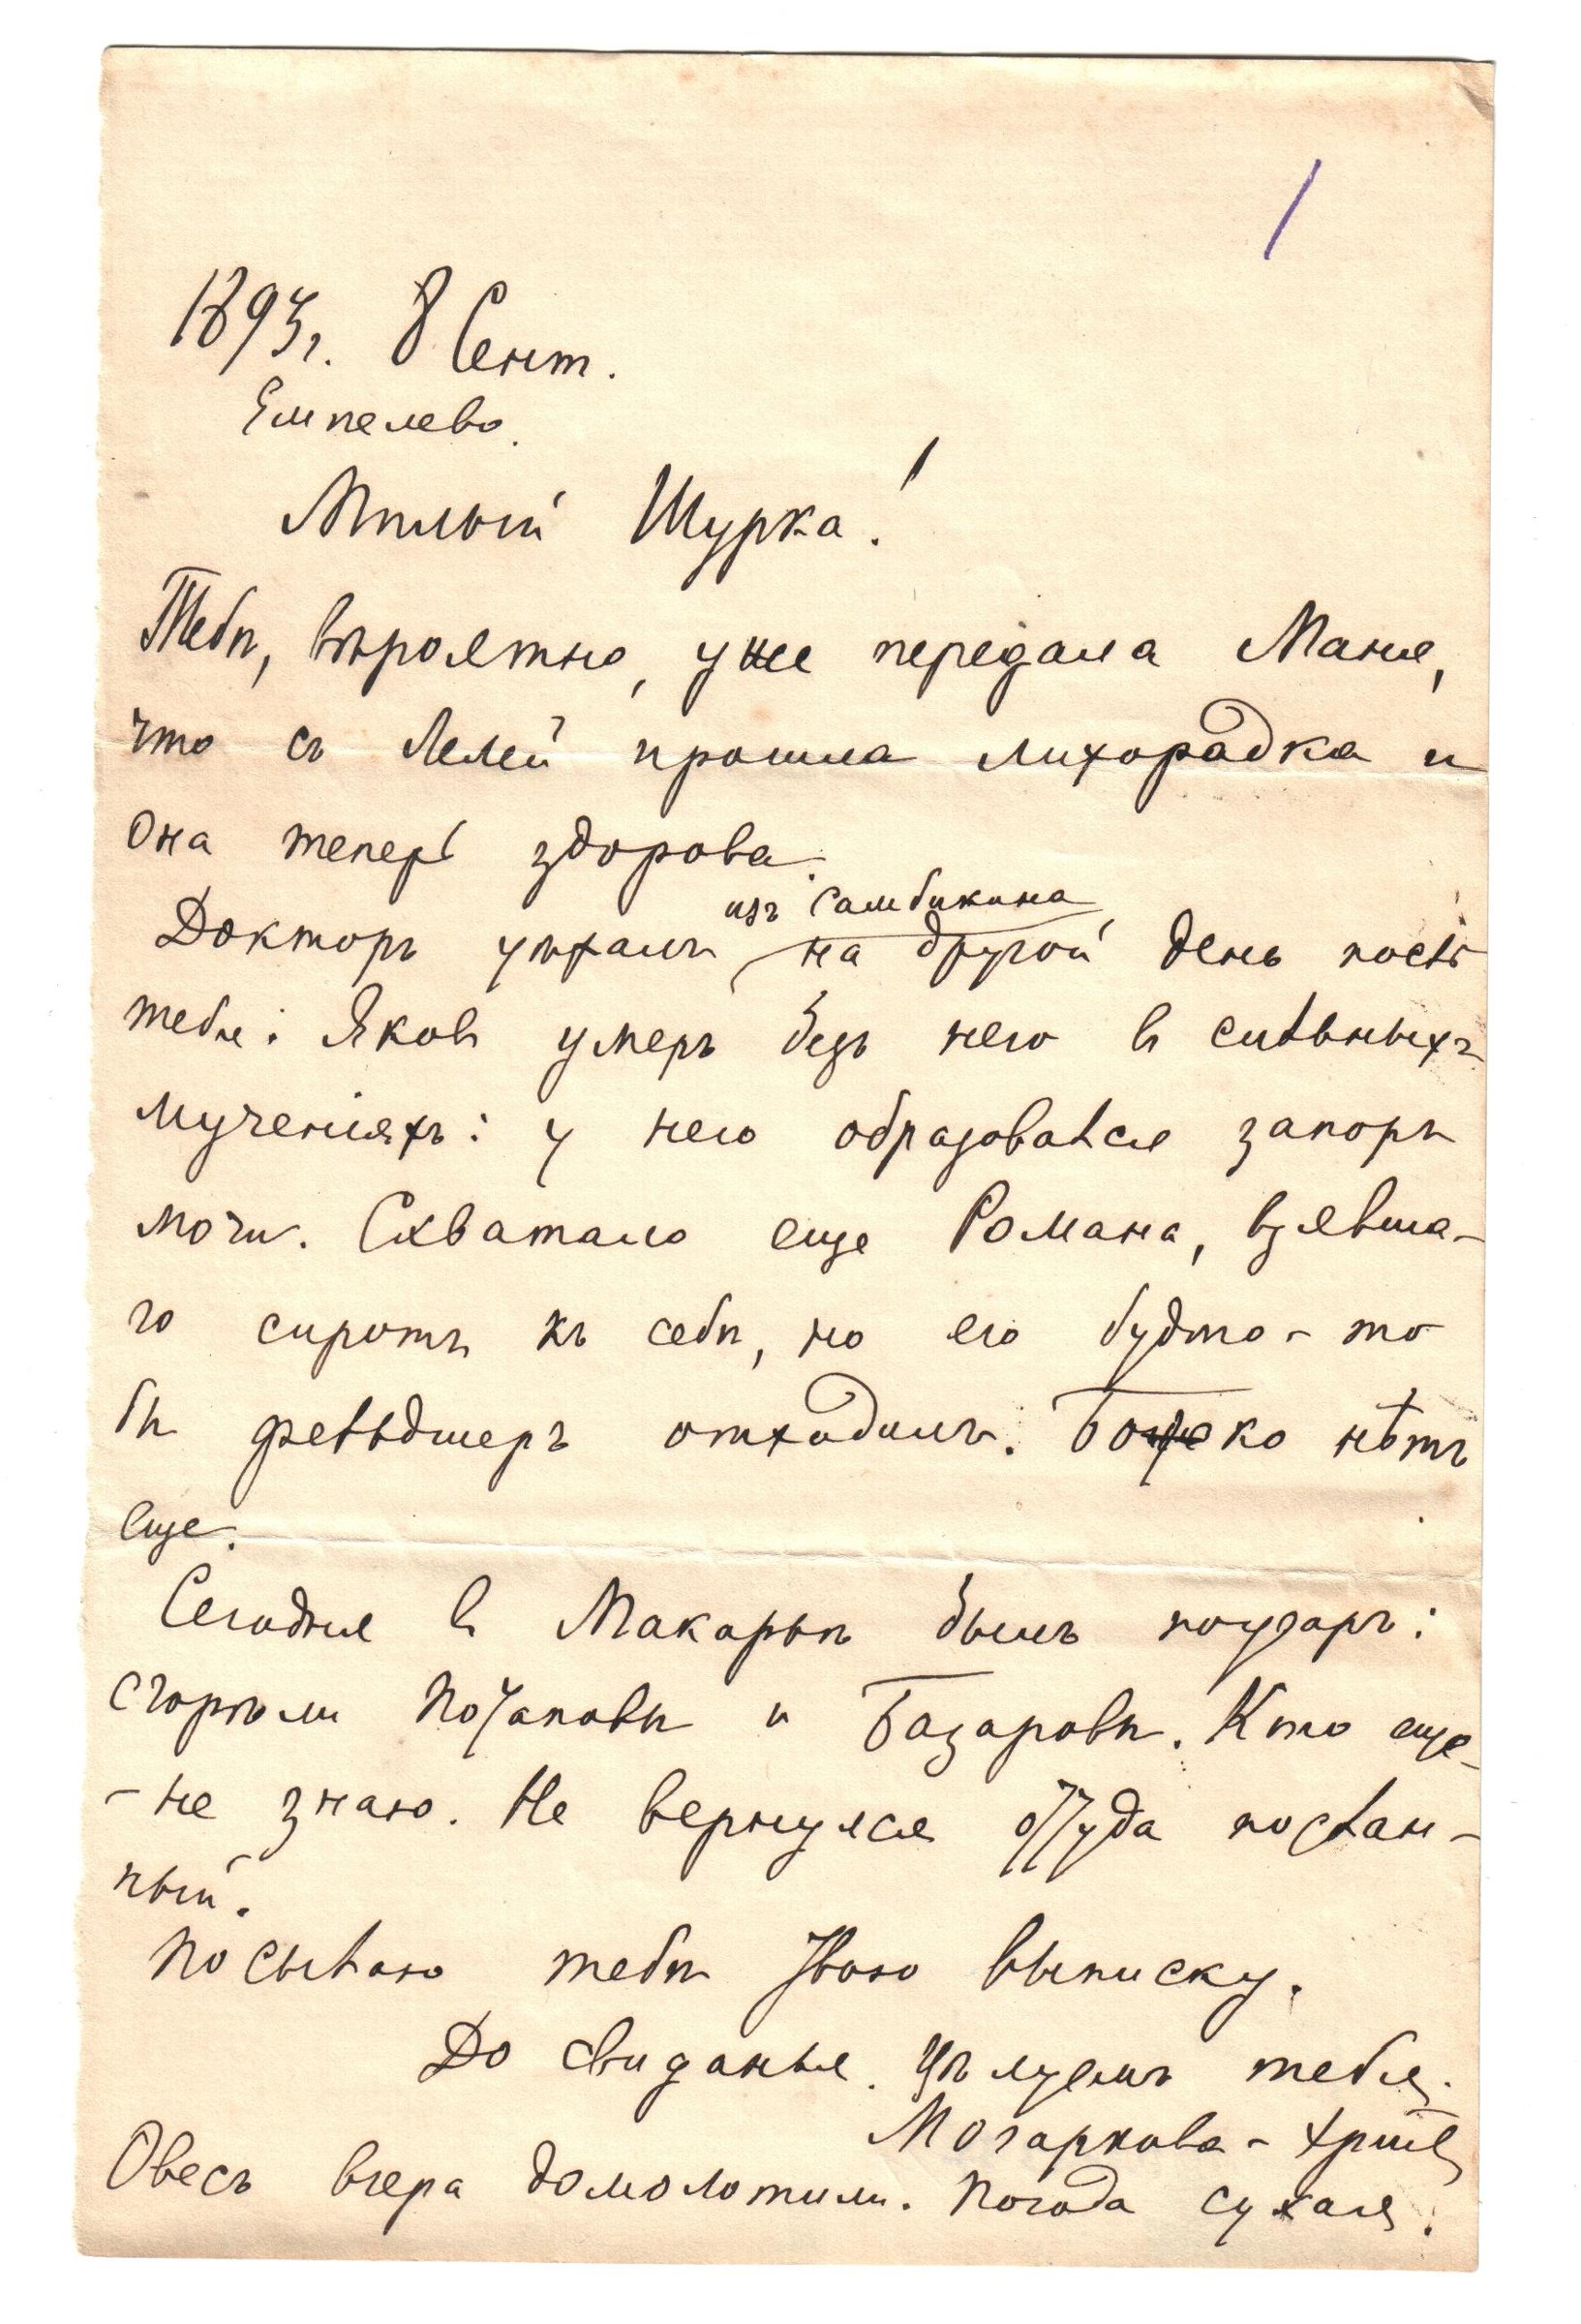 1893г. 8 Сент.
Емпелево.
Милый Шурка!
Тебѣ, вѣроятно, уже передала Маня,
что съ Лелей прошла лихорадка и
она теперь здорова.
изъ Самбикина
Докторъ уѣхалъ на другой день послѣ
тебя: Яковъ умеръ безъ него въ сильныхъ
мученіяхъ: у него образовался запоръ
мочи. Схватало еще Романа, взявша-
го сиротъ къ себѣ, но его будто-то
бы фельдшеръ отходилъ. нѣтъ
еще.
Сегодня въ Макарьѣ былъ пожаръ:
сгорѣли Потаповы и Базаровы. Кто еще-
-не знаю. Не вернулся оттуда послан-
ный.
Посылаю тебѣ твою выписку.
До свиданья. Цѣлуемъ тебя.
Овесъ вчера домолотили. Погода сухая.